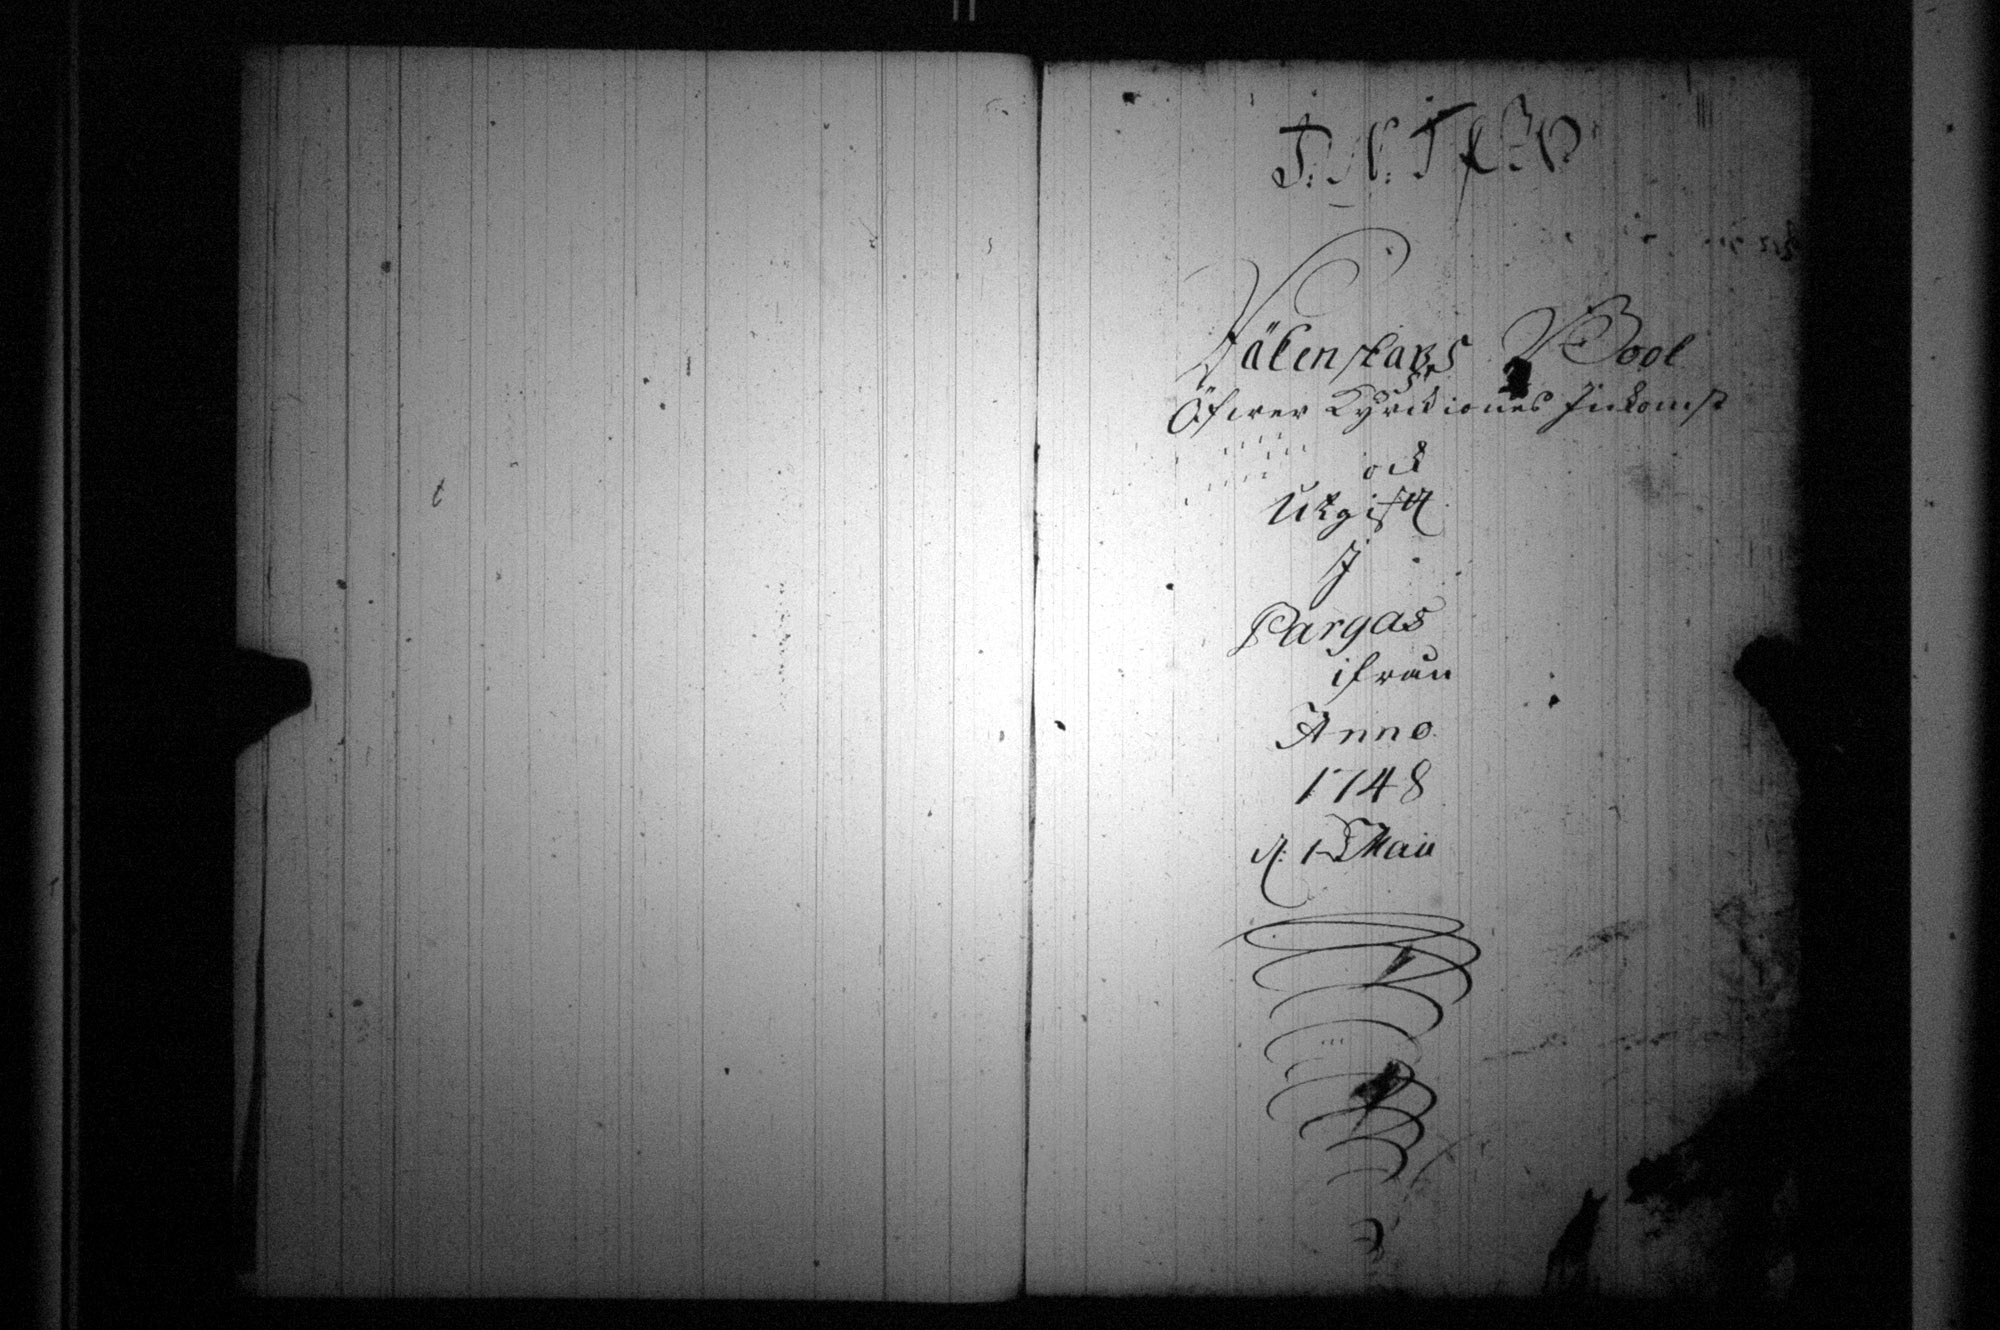 J. N. J.
Räkenskaps Book
Öfwer Kyrckiones Inkomst
ock
Utgift
J
Pargas
ifrån
Anno
1748
d. 1 Maii